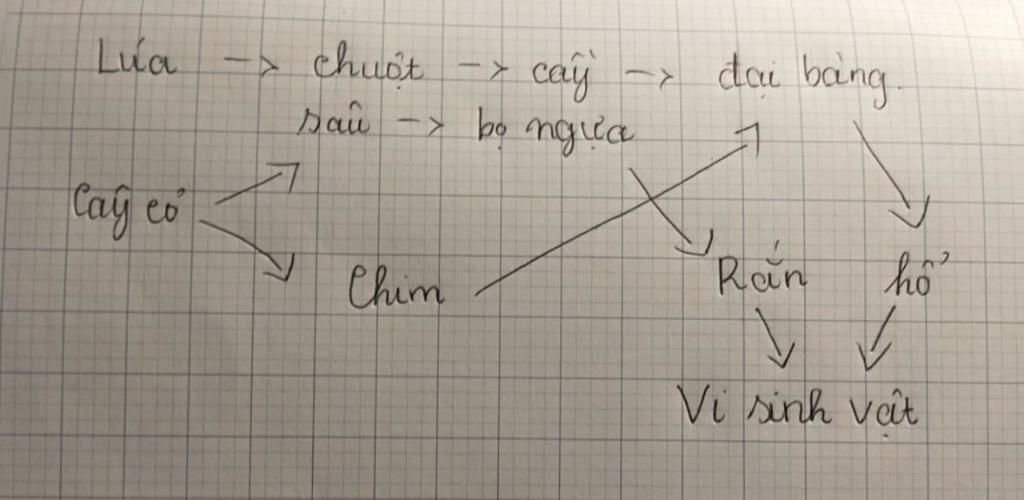 Lúa -> chuột -> cầy -> đại bàng.
sâu -> bọ ngựa
Cây cỏ
Chim
Rắn hổ
Vi sinh vật